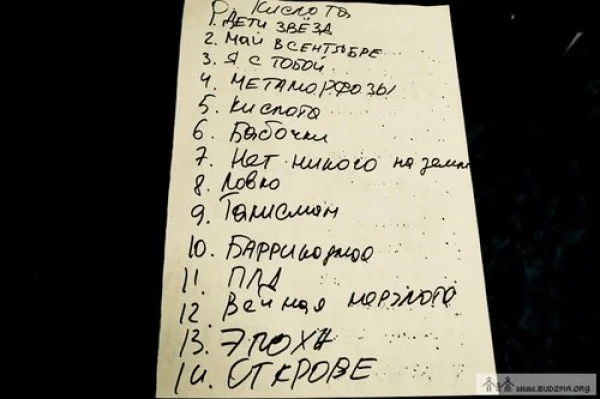 0. Кислота
1. ДЕТИ ЗВЁЗД
2. МАЙ В СЕНТЯБРЕ
3. Я С ТОБОЙ
4. МЕТАМОРФОЗЫ
5. Кислота
6. Бабочки
7. Нет никого на земл
8. Ловко
9. Талисман
10. БАРРИКАДНАЯ
11. ПЛА
12. Вечная мерзлота
13. ЭПОХА
14. ОТКРОВЕ
www.budzma.org